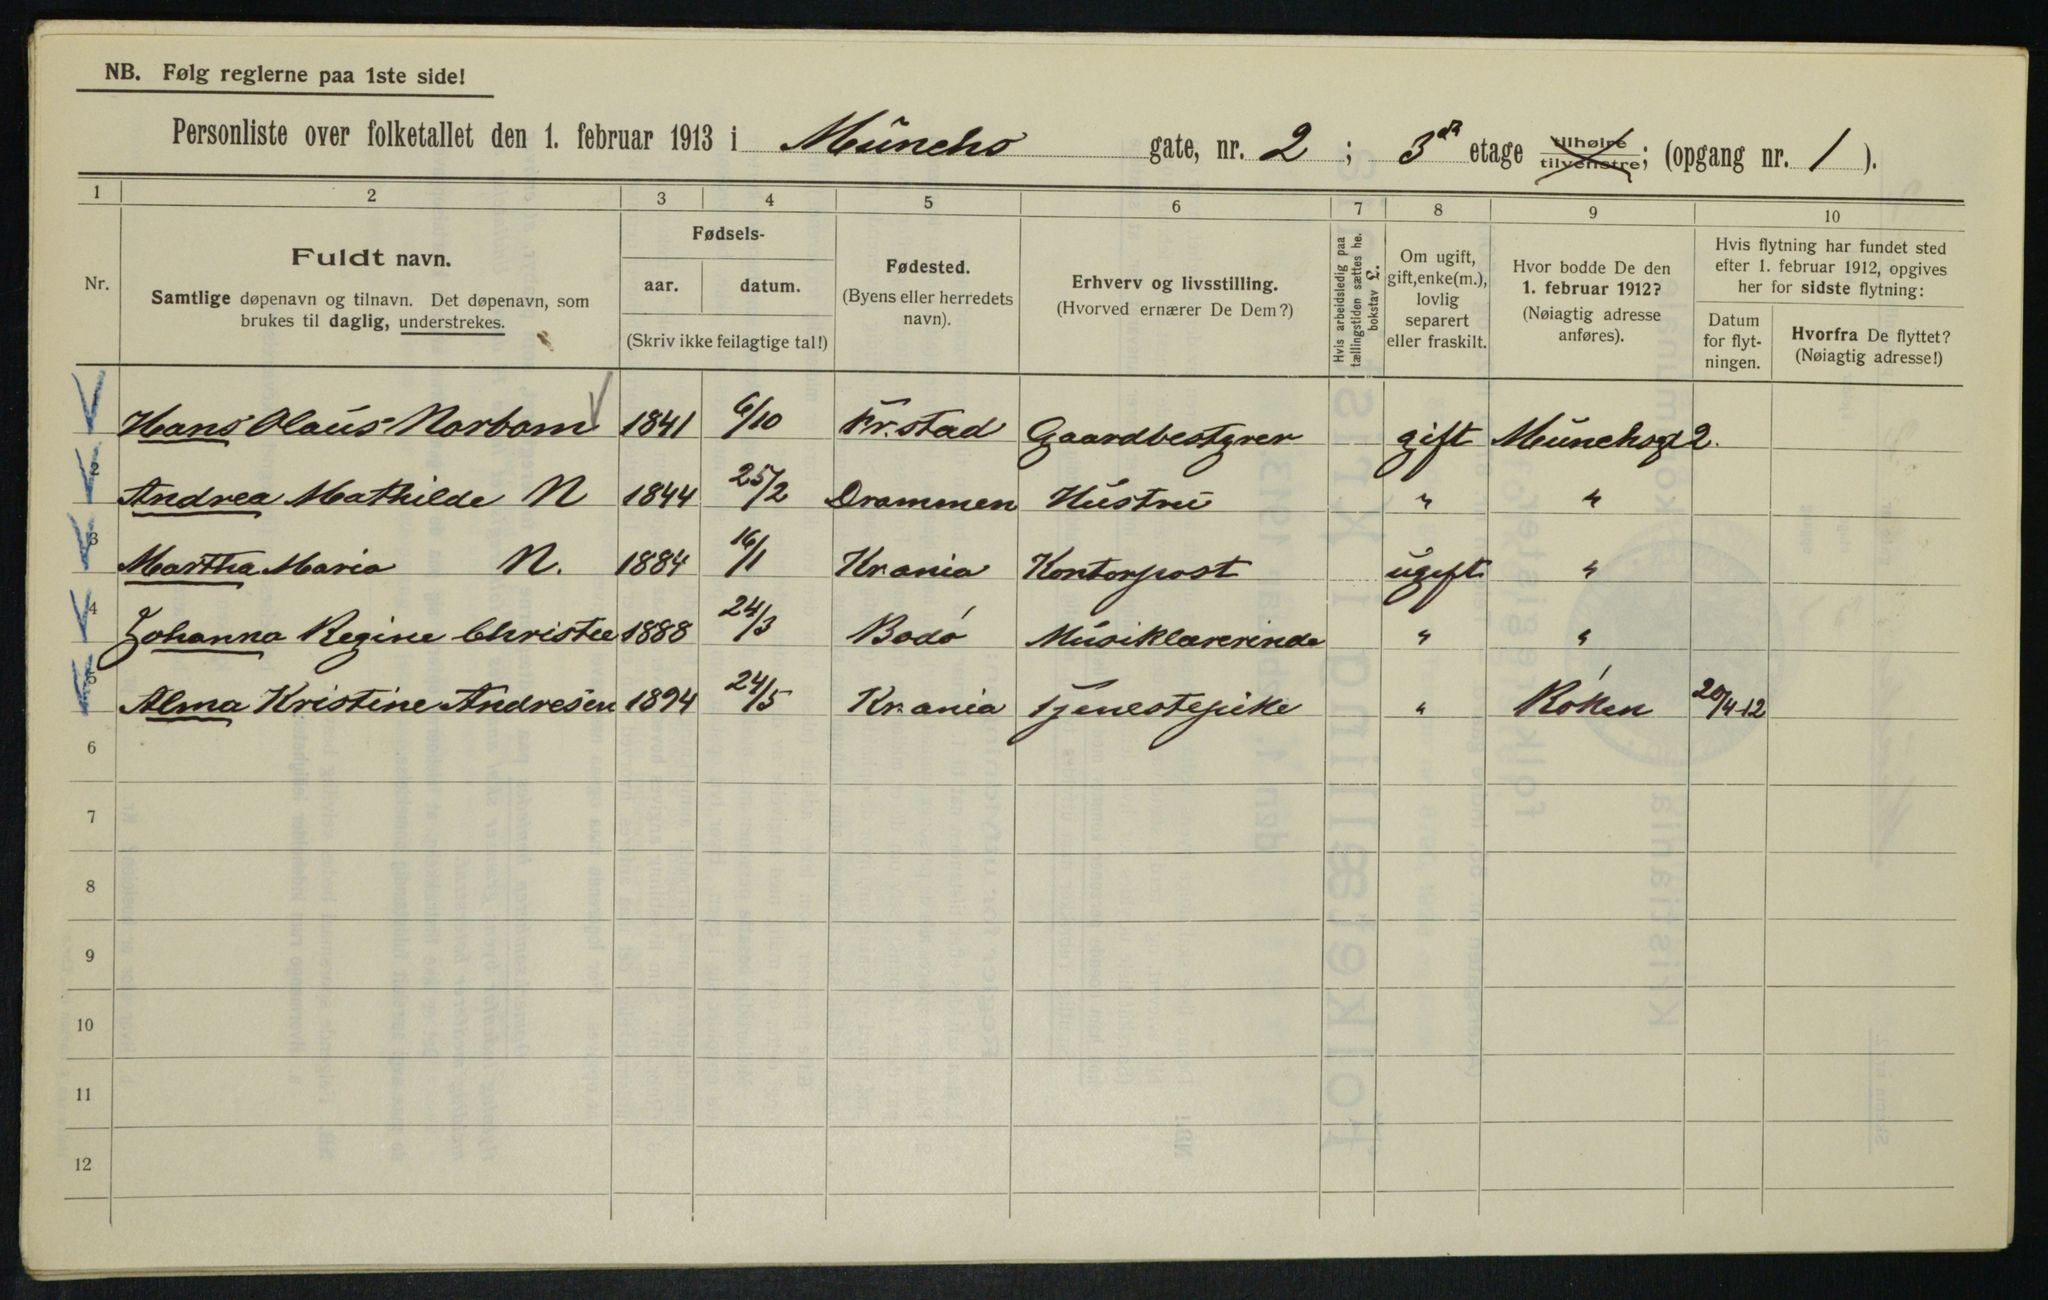 NB. Følg reglerne paa 1ste side!
Personliste over folketallet den 1. februar 1913 i Münchs gate, nr. 2 ; 3die etage tilhøire tilvenstre; (opgang nr. 1 ).
1 2 3 4 5 6 7 8 9 10
Nr.
Fuldt navn.
Samtlige døpenavn og tilnavn. Det døpenavn, som
brukes til daglig, understrekes.
Fødsels-
aar. datum.
(Skriv ikke feilagtige tal!)
Fødested.
(Byens eller herredets
navn).
Erhverv og livsstilling.
(Hvorved ernærer De Dem?)
Hvis arbeidsledig paa
tællingstiden sættes he.
bokstav L.
Om ugift,
gift, enke(m.),
lovlig
separert
eller fraskilt.
Hvor bodde De den
1. februar 1912?
(Nøiagtig adresse
anføres).
Hvis flytning har fundet sted
efter 1. februar 1912, opgives
her for sidste flytning:
Datum
for flyt-
ningen.
Hvorfra De flyttet?
(Nøiagtig adresse!)
Hans Olaus Norbom 1841 6/10 Fr.stad Gaardbestyrer gift Münchsgt 2.
2 Andrea Mathilde N 1844 25/2 Drammen Hustru " "
3 Martha Maria N. 1884 16/1 Kr.ania Kontorpost ugift "
4 Johanna Regine Christee 1888 24/3 Bodó Musiklærerinde " "
5 Alma Kristine Andresen 1894 24/5 Kr.ania Tjenestepike " Róken 20/4-12
6
7
8
9
10
11
12